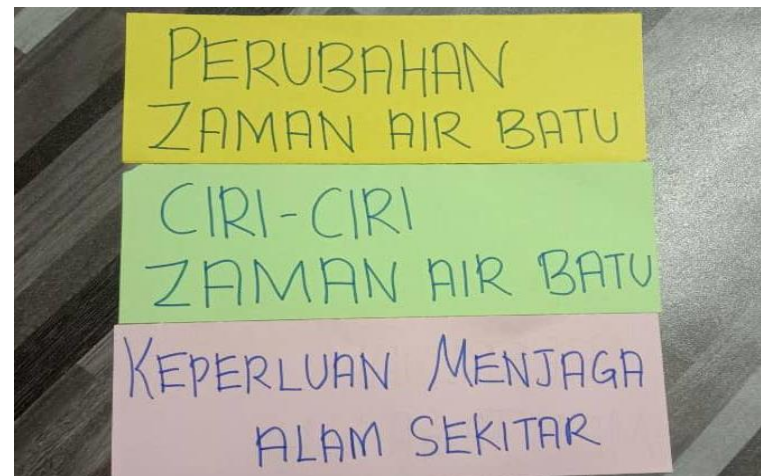 PERUBAHAN
ZAMAN AIR BATU
CIRI-CIRI
ZAMAN AIR BATU
KEPERLUAN MENJAGA
ALAM SEKITAR